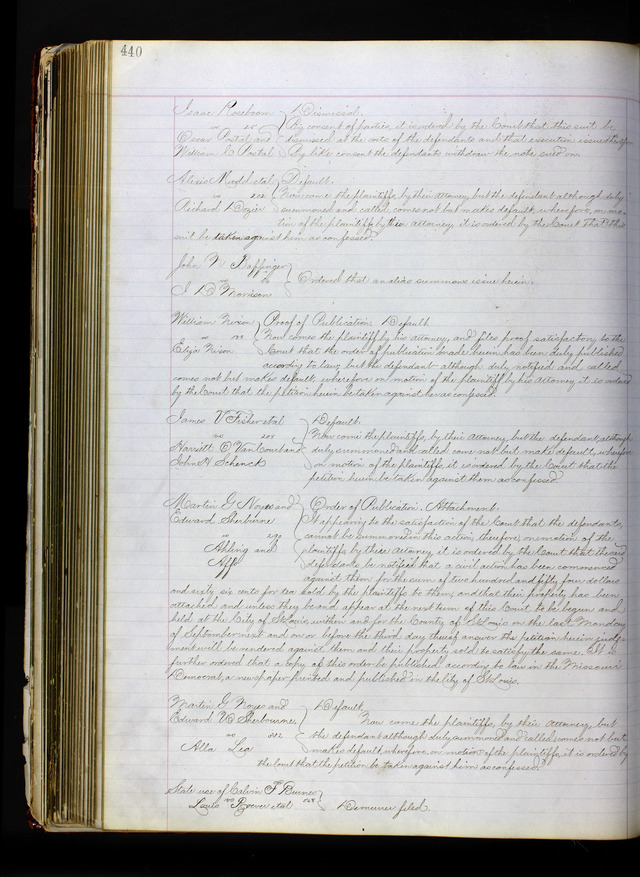 440
Isaac Roseboom } Dismissal.
vs 25 } By consent of parties, it is ordered by the Court that this suit be
Oscar Postal and } dismissed at the costs of the defendants and that execution issue therefor
William C Postal } By like consent the defendants withdraw the note sued on.
Alexis Mudd et al } Default.
vs 202 } Now come the plaintiffs, by their attorney, but the defendant although duly
Richard Dozier } summoned and called, comes not but makes default, wherefore, on mo-
tion of the plaintiffs by their attorney, it is ordered by the Court That this
suit be taken against him as confessed.
John N
vs } Ordered that an alias summons issue herein.
Morrison
William Nixon } Proof of Publication. Default
vs } Now comes the plaintiff by his attorney, and files proof satisfactory to the
Eliza Nixon } Court that the order of publication made herein has been duly published
according to law, but the defendant although duly notified and called
comes not but makes default, wherefore on motion of the plaintiff by his attorney it is ordered
by the Court that the petition herein be taken against her as confessed.
James V Fisher et al } Default.
vs 205 } Now come the plaintiffs, by their attorney, but the defendants, although
Harriett E Van } duly summoned and called come not but make default, wherefore
John H Schenck } on motion of the plaintiffs, it is ordered by the Court that the
petition herein be taken against them as confessed
Martin G Noyes and } Order of Publication. Attachment.
Edward Sherburne } It appearing to the satisfaction of the Court that the defendants,
vs 290 } cannot be summoned in this action, therefore, on motion of the
Ahling and } plaintiffs by their attorney it is ordered by the Court that the said
} defendants be notified that a civil action has been commenced
against them for the sum of two hundred and fifty four dollars
and sixty six cents for tea sold by the plaintiffs to them, and that their property has been
attached and unless they be and appear at the next term of this Court to be begun and
held at the City of St Louis, within and for the County of St Louis on the last Monday
of September next and on or before the third day thereof answer the petition herein judg-
ment will be rendered against them and their property sold to satisfy the same. It is
further ordered that a copy of this order be published according to law in the Missouri
Democrat, a newspaper printed and published in the City of St Louis.
Martin G Noyes and } Default,
Edward Sherbourne } Now come the plaintiffs, by their attorney, but
vs } the defendant although duly summoned and called comes not but
Alla Lea } makes default, wherefore, on motion of the plaintiffs, it is ordered by
the Court that the petition be taken against him as confessed.
State use of Calvin F Burnes }
vs } Demurrer filed.
Louis et al